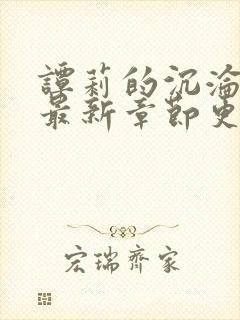 譚莉的沉淪
最新章節史
宏瑞齊家